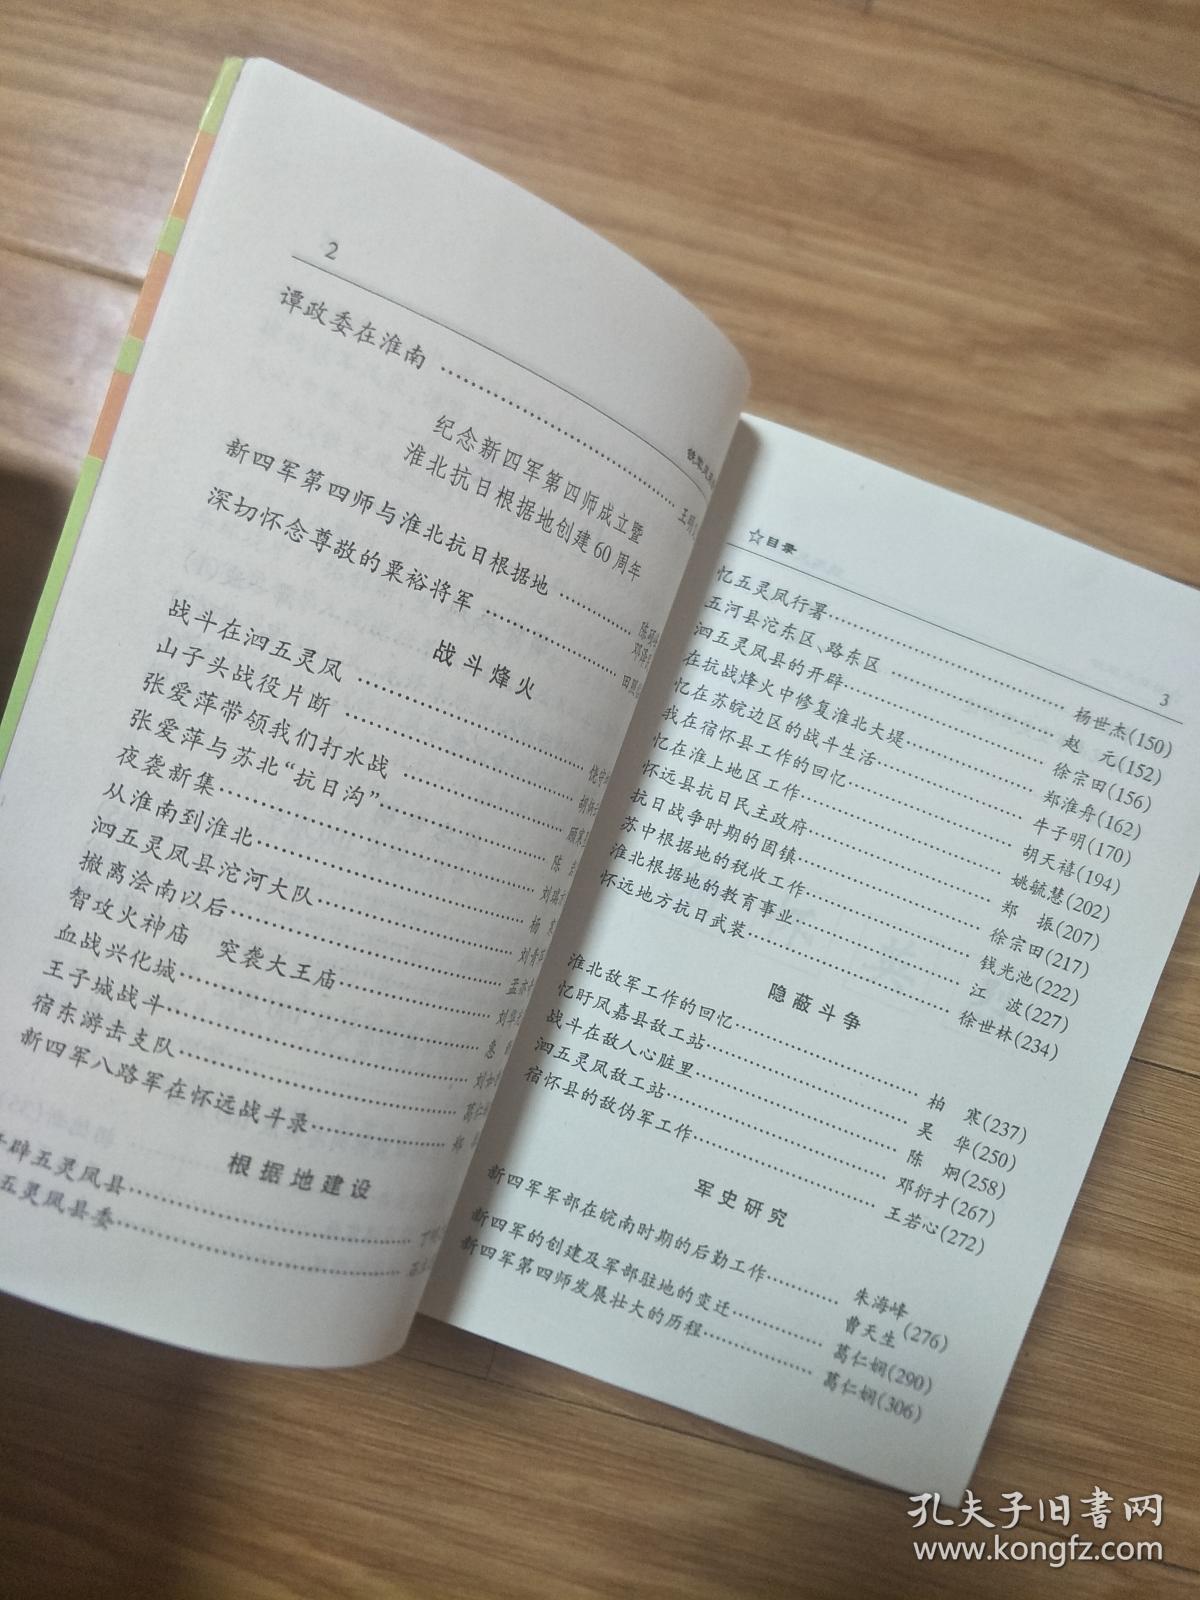 2
谭政委在淮南
王明
纪念新四军第四师成立暨
淮北抗日根据地创建60周年
新四军第四师与淮北抗日根据地
深切怀念尊敬的粟裕将军
战斗烽火
战斗在泗五灵凤
山子头战役片断
张爱萍带领我们打水战
张爱萍与苏北“抗日沟”
夜袭新集
陈
从淮南到淮北
泗五灵凤县沱河大队
杨
撤离浍南以后
智攻火神庙 突袭大王庙
血战兴化城
王子城战斗
宿东游击支队
新四军八路军在怀远战斗录
郑
根据地建设
辟五灵凤县
五灵凤县委
☆目录
3
忆五灵凤行署 杨世杰(150)
五河县沱东区、路东区 赵 元(152)
泗五灵凤县的开辟 徐宗田(156)
在抗战烽火中修复淮北大堤 郑淮舟(162)
忆在苏皖边区的战斗生活 牛子明(170)
我在宿怀县工作的回忆 胡天禧(194)
忆在淮上地区工作 姚毓慧(202)
怀远县抗日民主政府 郑 振(207)
抗日战争时期的固镇 徐宗田(217)
苏中根据地的税收工作 钱光池(222)
淮北根据地的教育事业 江 波(227)
怀远地方抗日武装 徐世林(234)
隐蔽斗争
淮北敌军工作的回忆 柏 寒(237)
忆盱凤嘉县敌工站 吴 华(250)
战斗在敌人心脏里 陈 炯(258)
泗五灵凤敌工站 邓衍才(267)
宿怀县的敌伪军工作 王若心(272)
军史研究
新四军军部在皖南时期的后勤工作 朱海峰
曹天生(276)
新四军的创建及军部驻地的变迁 葛仁娴(290)
新四军第四师发展壮大的历程 葛仁娴(306)
孔夫子旧书网
www.kongfz.com